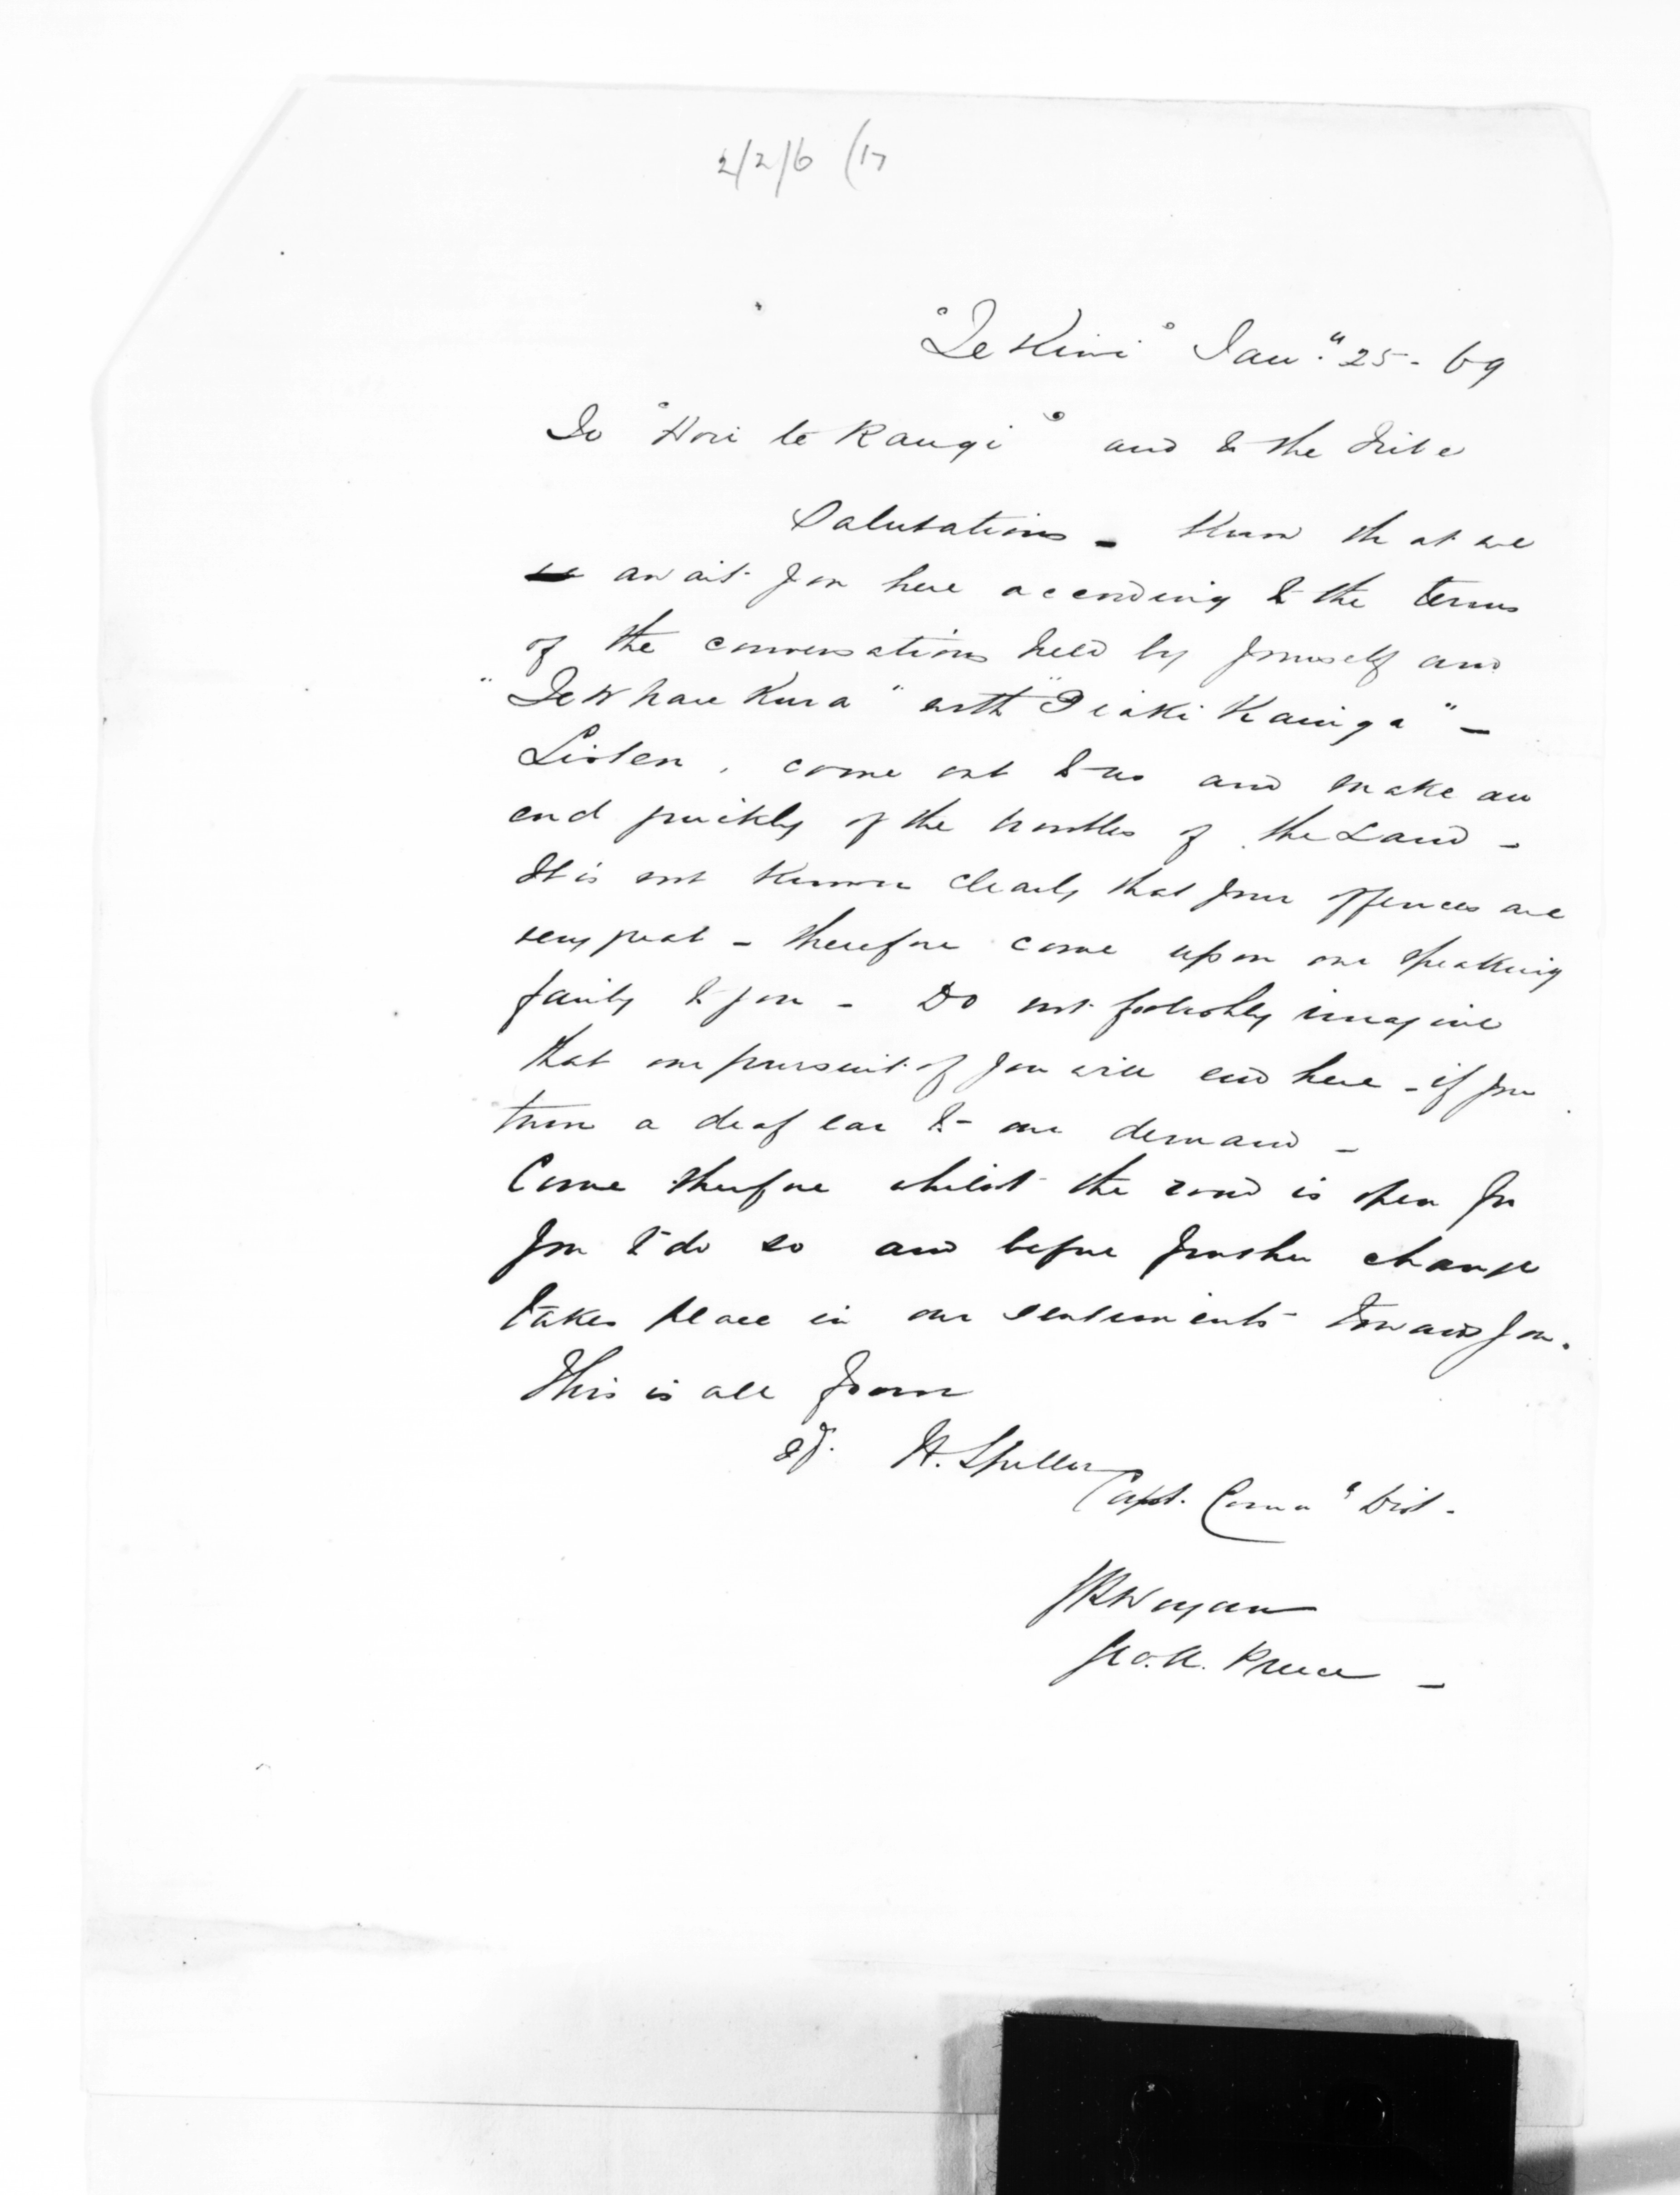 2/2/6 (17
"Te Kiwi" Jany. 25 - 69
To "Hori te Rangi" and to the Tribe
Salutations - Know that we
await you here according to the terms
of the conversations held by yourself and
"Te Whare Kura" with "Tiaki Kainga" -
Listen, come out to us and make an
end quickly of the troubles of the Land -
It is not known clearly that your offences are
very great - therefore come upon our speaking
fairly to you - Do not foolishly imagine
that our pursuit of you will end here - if you
turn a deaf ear to our demand -
Come therefore whilst the road is open for
you to do so and before further change
takes place in our sentiments toward you.
This is all from
Sd. H. Spiller
Capt. Comg. Dist.
F E Hamlin
Geo. A. Preece -